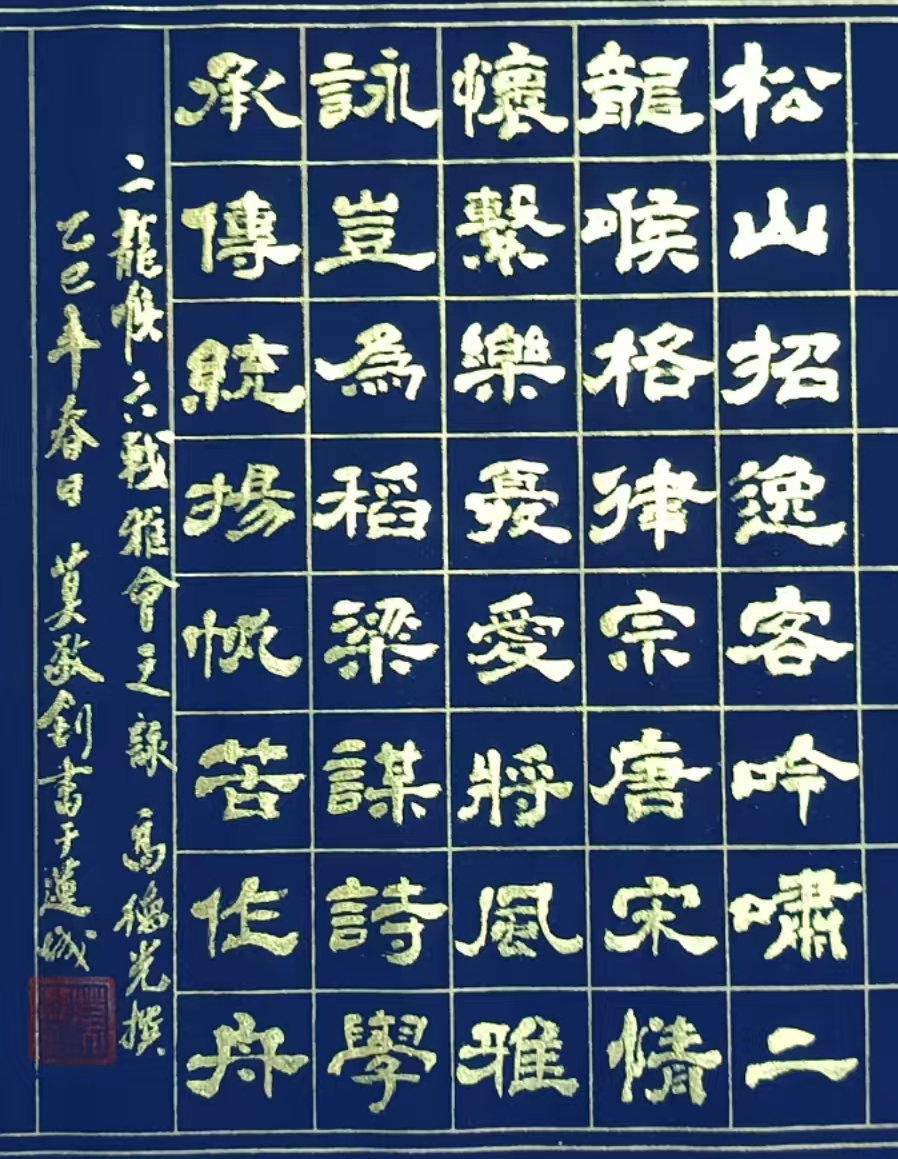 松山招逸客吟嘯二
龍喉格律宗唐宋情
懷繫樂憂愛將風雅
詠豈為稻粱謀詩學
承傳統揚帆苦作舟
二龍喉六戰雅會之詠 高德光撰
乙巳年春日 莫敬釗書于蓮城